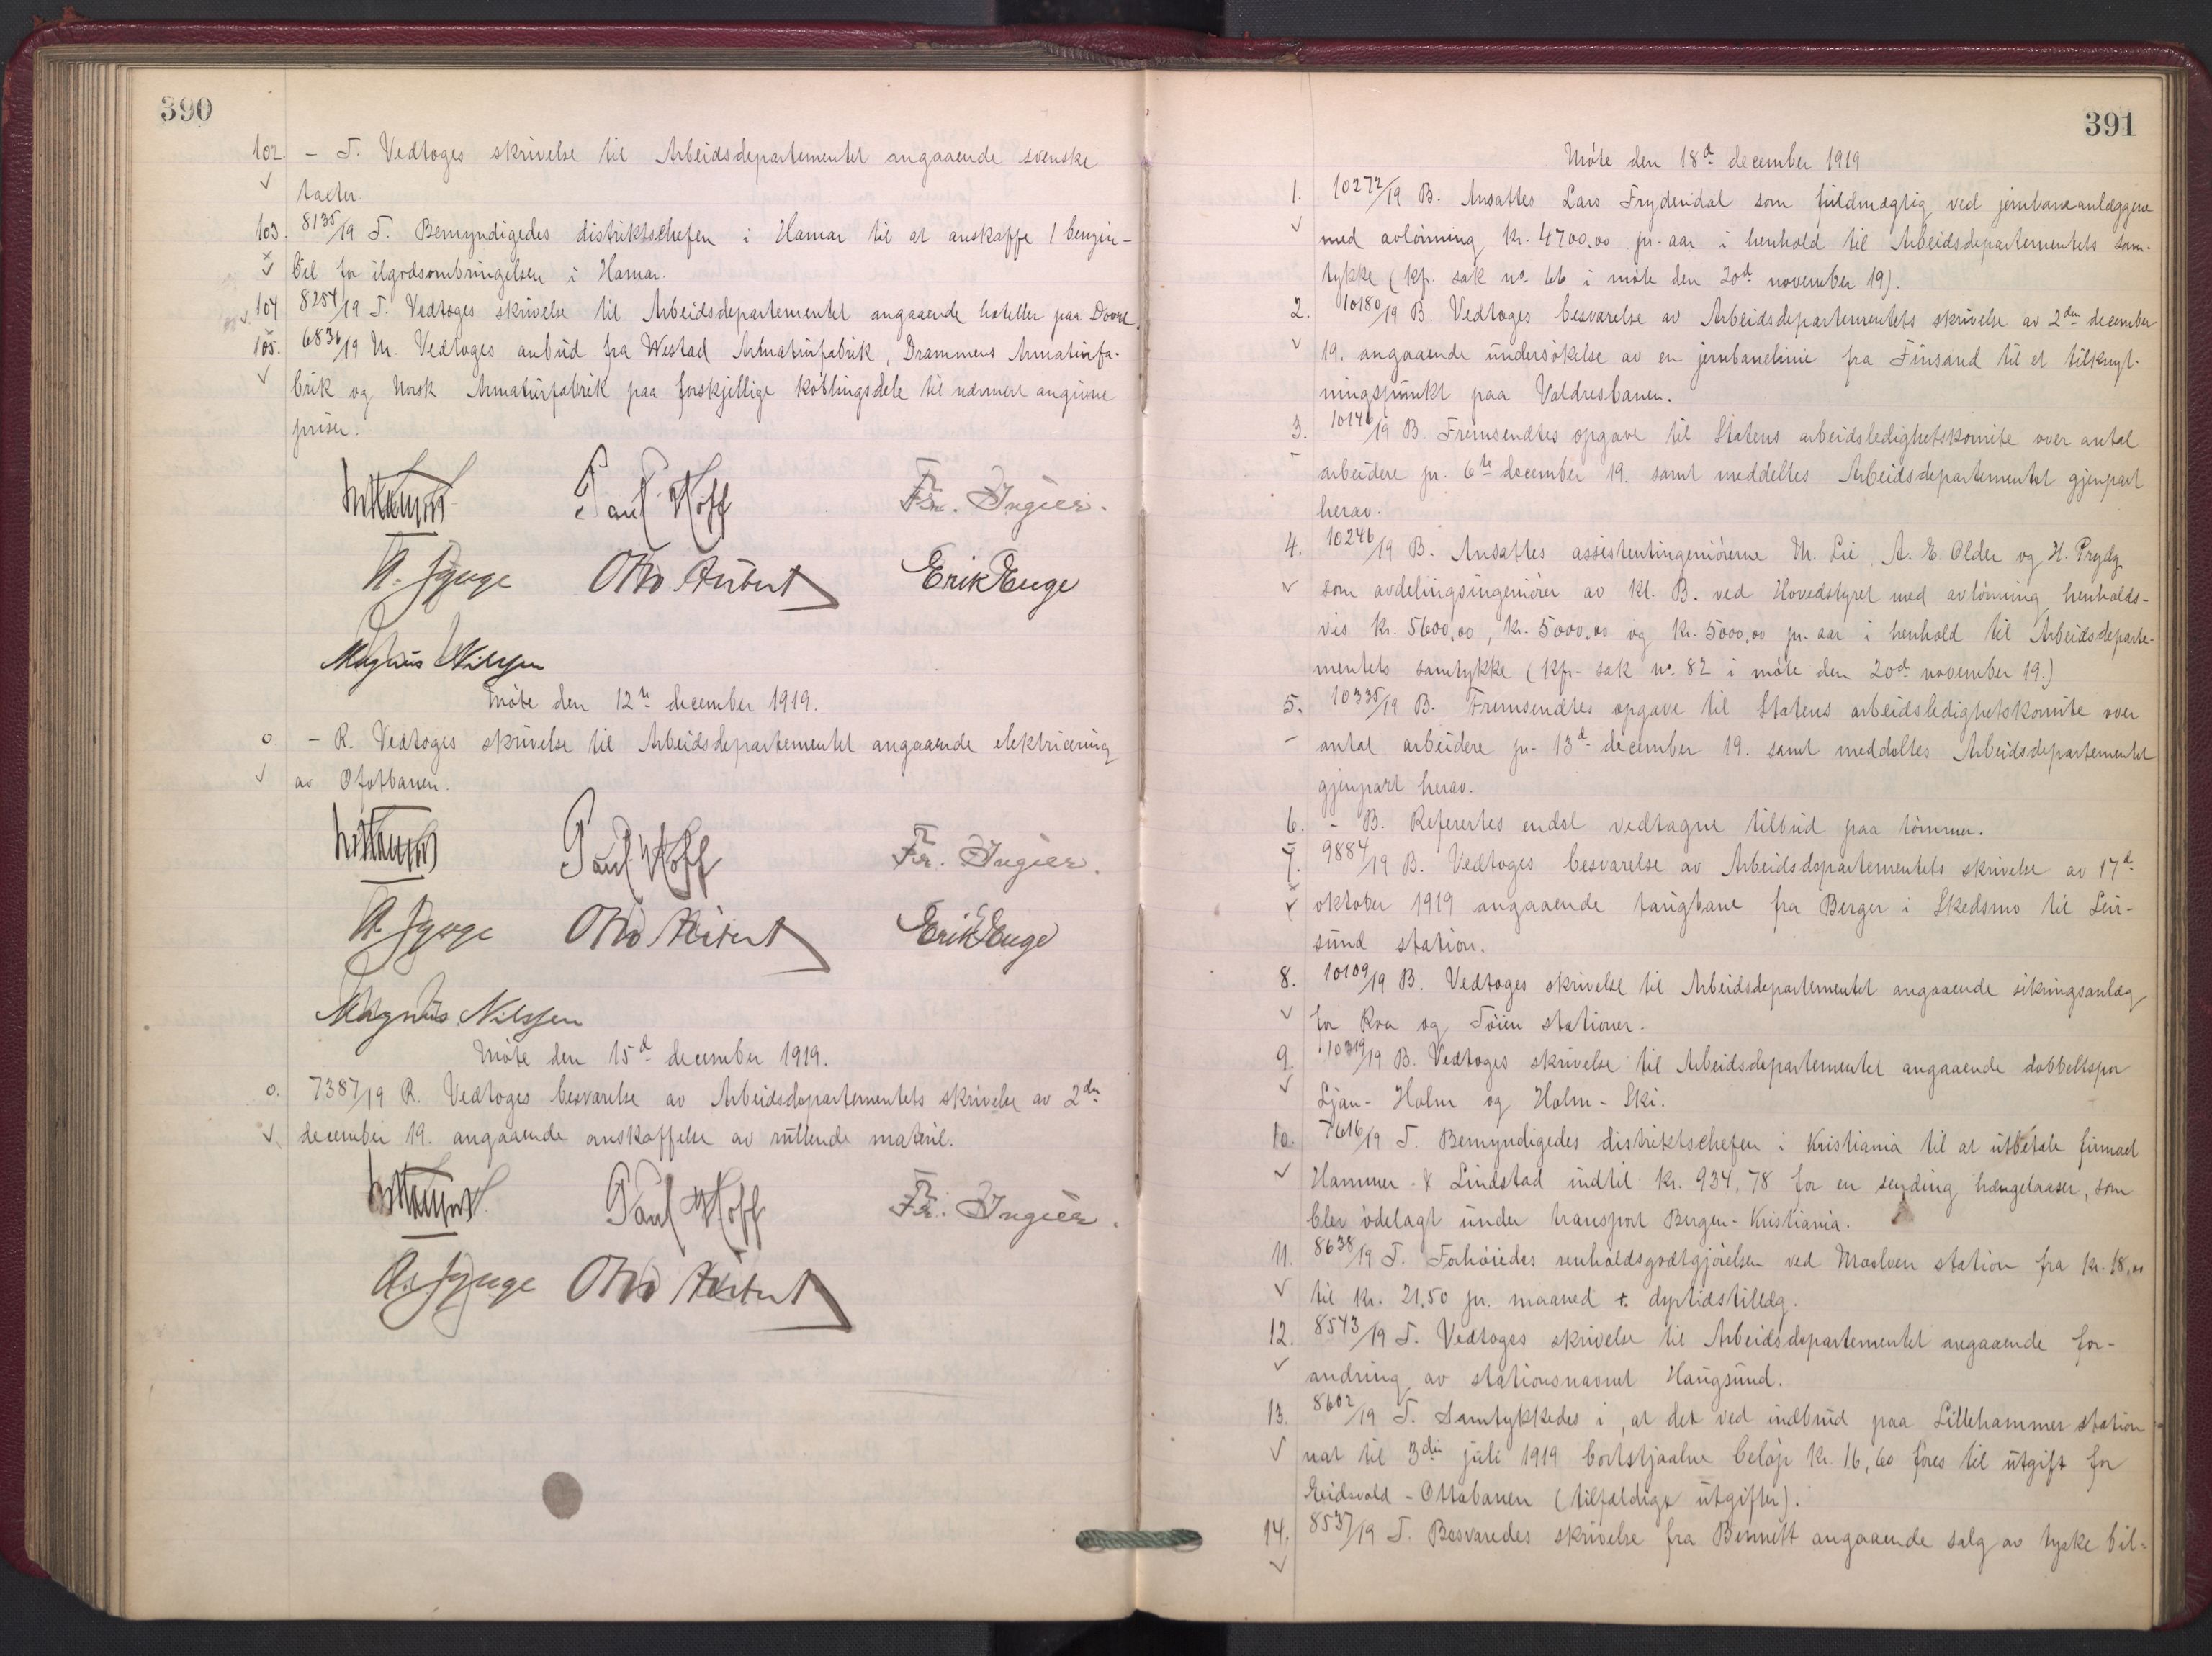 390
102. - T. Vedtoges skrivelse til Arbeidsdepartementet angaaende svenske
taxter.
103. 8135/19 T. Bemyndigedes distriktschefen i Hamar til at anskaffe 1 bengin-
bil for ilgodsombringelsen i Hamar.
104 8254/19 T. Vedtoges skrivelse til Arbeidsdepartementet angaaende hoteller paa Dovre.
105. 6836/19 M. Vedtoges anbud fra Westad Armaturfabrik, Drammens Armaturfa-
brik og Norsk Armaturfabrik paa forskjellige koblingsdele til nærmere angivne
priser.
Paul Hoff Fr. Ingier.
Otto Aubert Erik Enge
Magnus Nilssen
Møte den 12te december 1919.
0. - R. Vedtoges skrivelse til Arbeidsdepartementet angaaende elektricering
av Ofotbanen.
Paul Hoff Fr. Ingier.
Otto Aubert Erik Enge
Magnus Nilssen
Møte den 15d december 1919.
0. 7387/19 R. Vedtoges besvarelse av Arbeidsdepartementets skrivelse av 2den
december 19. angaaende anskaffelse av rullende materiel.
Paul Hoff Fr. Ingier.
Otto Aubert
391
Møte den 18d december 1919
1. 10272/19 B. Ansattes Lars Frydendal som fuldmægtig ved jernbaneanlæggene
med avlønning kr. 4700,00 pr. aar i henhold til Arbeidsdepartementets sam-
tykke (kfr. sak no. 66 i møte den 20d november 19).
2. 10180/19 B. Vedtoges besvarelse av Arbeidsdepartementets skrivelse av 2den december
19. angaaende undersøkelse av en jernbanelinie fra Finsand til et tilknyt-
ningspunkt paa Valdresbanen.
3. 10146/19 B. Fremsendtes opgave til Statens arbeidsledighetskomite over antal
arbeidere pr. 6te december 19. samt meddeltes Arbeidsdepartementet gjenpart
herav.
4. 10246/19 B. Ansattes assistentingeniørerne M. Lie, A. E. Older og H. Prydz
som avdelingsingeniører av kl. B. ved Hovedstyret med avlønning henholds-
vis kr. 5600,00, kr. 5000,00 og kr. 5000,00 pr. aar i henhold til Arbeidsdeparte-
mentets samtykke (kfr. sak no. 82 i møte den 20d november 19.)
5. 10335/19 B. Fremsendtes opgave til Statens arbeidsledighetskomite over
antal arbeidere pr. 13d december 19. samt meddeltes Arbeidsdepartementet
gjenpart herav.
6. - B. Refererstes endel vedtagne tilbud paa tømmer.
7. 9884/19 B. Vedtoges besvarelse av Arbeidsdepartementets skrivelse av 17d
oktober 1919 angaaende taugbane fra Berger i Skedsmo til Leir-
sund station.
8. 10109/19 B. Vedtoges skrivelse til Arbeidsdepartementet angaaende sikringsanlæg
for Roa og Tøien stationer.
9. 10319/19 B. Vedtoges skrivelse til Arbeidsdepartementet angaaende dobbeltspor
Ljan- Holm og Holm- Ski.
10. 7616/19 T. Bemyndigedes distriktschefen i Kristiania til at utbetale firmaet
Hammer & Lindstad indtil kr. 934,78 for en sending hængelaaser, som
blev ødelagt under transport Bergen- Kristiania.
11. 8638/19 T. Forhøiedes renholdsgodtgjørelsen ved Moelven station fra kr. 18,00
til kr. 21,50 pr. maaned + dyrtidstillæg.
12. 8543/19 T. Vedtoges skrivelse til Arbeidsdepartementet angaaende for-
andring av stationsnavnet Haugsund.
13. 8602/19 T. Samtykkedes i, at det ved indbrud paa Lillehammer station
nat til 3die juli 1919 bortstjaalne beløp kr. 16,60 føres til utgift for
Eidsvold - Ottabanen (tilfældige utgifter).
14. 8537/19 T. Besvaredes skrivelse fra Bennett angaaende salg av tyske bil-